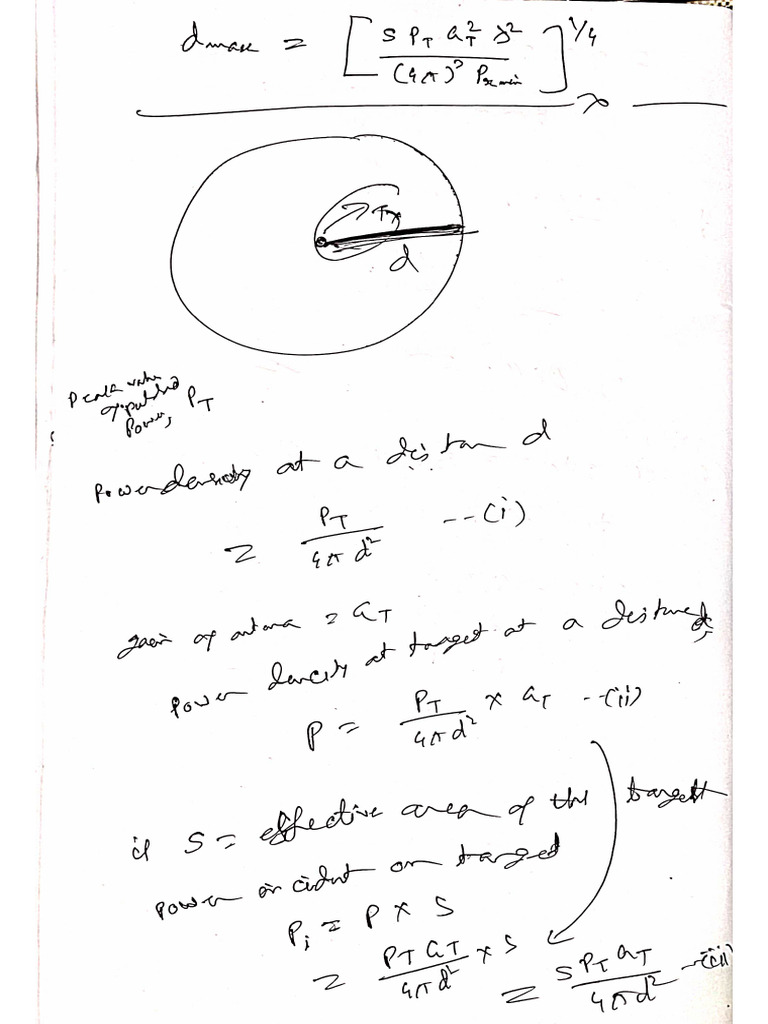 d max = [ S P_T G_T² λ² / (4π)³ P_r min ]^1/4
Tx
d
Peak value
of pulsed
Power, P_T
Power density at a distan d
= P_T / 4π d² --(i)
gain of antena = G_T
Power density at target at a distance d,
P = P_T / 4π d² × G_T --(ii)
if S = effective area of the target
Power incident on target
P_i = P × S
= P_T G_T / 4π d² × S = S P_T G_T / 4π d² --(iii)